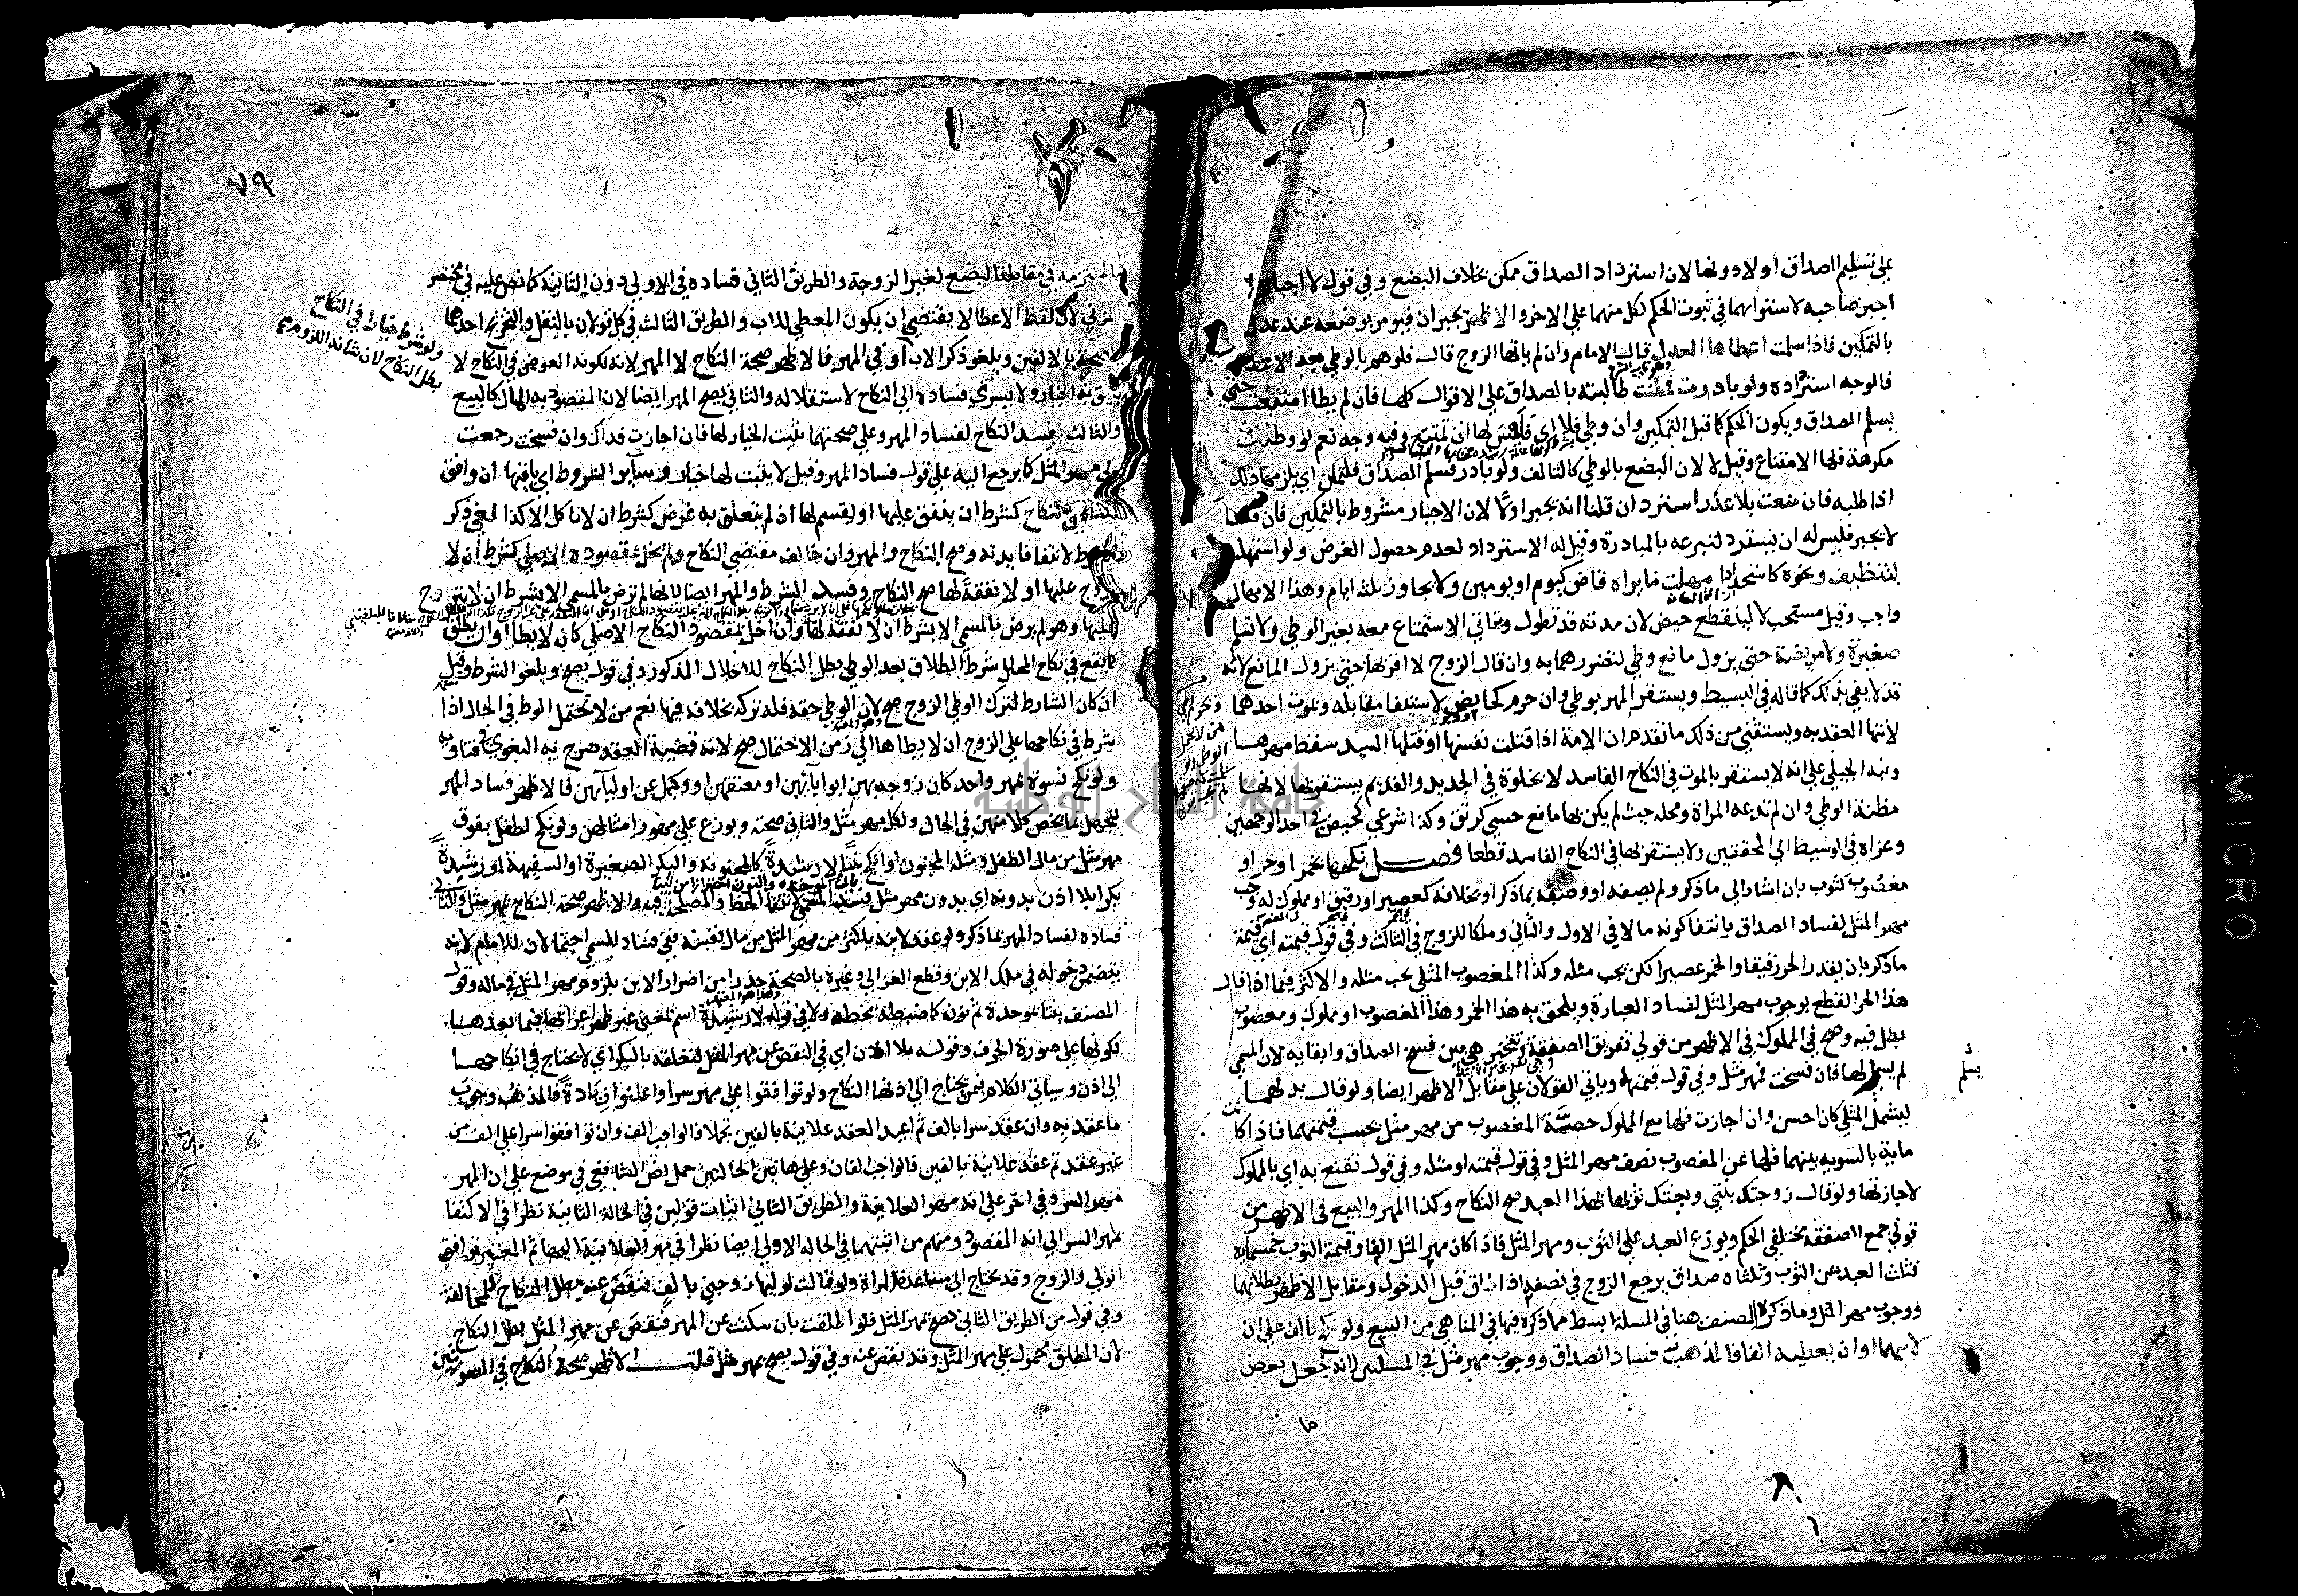 على تسليم الصداق اولا دونها لان استرداد الصداق ممكن بخلاف البضع وفي قول لا اجبار
اجبر صاحبه لاستوائهما في ثبوت الحكم لكل منهما على الاخر والاظهر يجبران فيومر بوضعه عند عدل
بالتمكين فاذا سلمت اعطاها العدل قال الامام وان لم ياتها الزوج قال فلو هم بالوطي
فالوجه استرداده ولو بادرت فمكنت طالبته بالصداق على الاقوال كلها فان لم يطا امتنعت حتى
يسلم الصداق ويكون الحكم كما قبل التمكين وان وطي فلا اي فليس لها ان تمتنع وفيه وجه نعم لو وطئت
مكرهة فلها الامتناع وقيل لا لان البضع بالوطي كالتالف ولو بادر فسلم الصداق فلتمكن اي يلزمها ذلك
اذا طلبه فان منعت بلا عذر استرد ان قلنا انه يجبر اولا لان الاجبار مشروط بالتمكين فان قلنا
لا يجبر فليس له ان يسترد لتبرعه بالمبادرة وقيل له الاسترداد لعدم حصول الغرض ولو استمهلت
لتنظيف ونحوه كاستحداد امهلت ما يراه قاض كيوم او يومين ولا يجاوز ثلثة ايام وهذا الامهال
واجب وقيل مستحب لا لينقطع حيض لان مدته قد تطول ويتاتي الاستمتاع معه بغير الوطي ولا تسلم
صغيرة ولا مريضة حتى يزول مانع وطي لتضررهما به وان قال الزوج لا اقربها حتى يزول المانع لانه
قد لا يفي بذلك كما قاله في البسيط ويستقر المهر بوطي وان حرم كحايض لاستيفا مقابله وبموت احدهما
لانتها العقد به ويستثني من ذلك ما تقدم ان الامة اذا قتلت نفسها او قتلها السيد سقط مهرها
ونبه الجيلي على انه لا يستقر بالموت في النكاح الفاسد لا بخلوة في الجديد والقديم يستقر بها لانها
مظنة الوطي وان لم تدعه المراة ومحله حيث لم يكن بها مانع حسي كرتق وكذا شرعي كحيض في احد الوجهين
وعزاه في الوسيط الى المحققين ولا يستقر بها في النكاح الفاسد قطعا فصل نكحها بخمر او حر او
مغصوب كثوب بان اشار الى ما ذكر ولم يصفه او وصفه بما ذكر او بخلافه كعصير او رقيق او مملوك له وجب
مهر المثل لفساد الصداق بانتفا كونه مالا في الاول والثاني وملكا للزوج في الثالث وفي قول قيمته اي قيمة
ما ذكر بان يقدر الحر رقيقا والخمر عصيرا لكن يجب مثله وكذا المغصوب المثلي يجب مثله والاكثر فيما اذا قال
هذا الحر القطع بوجوب مهر المثل لفساد العبارة ويلحق به هذا الخمر وهذا المغصوب او مملوك ومغصوب
بطل فيه وصح في المملوك في الاظهر من قولي تفريق الصفقة وتتخير هي بين فسخ الصداق وابقايه لان المسمى
لم يسلم لها فان فسخت فمهر مثل وفي قول قيمتهما وياتي القولان على مقابل الاظهر ايضا ولو قال بدلهما
ليشمل المثلي كان احسن وان اجازت فلها مع المملوك حصة المغصوب من مهر مثل بحسب قيمتهما فاذا كانت
ماية بالسوية بينهما فلها عن المغصوب نصف مهر المثل وفي قول قيمته او مثله وفي قول تقنع به اي بالمملوك
لاجازتها ولو قال زوجتك بنتي وبعتك ثوبها بهذا العبد صح النكاح وكذا المهر والبيع في الاظهر من
قولي جمع الصفقة مختلفي الحكم ويوزع العبد على الثوب ومهر المثل فاذا كان مهر المثل الفا وقيمة الثوب خمسماية
فثلث العبد عن الثوب وثلثاه صداق يرجع الزوج في نصفه اذا طلق قبل الدخول ومقابل الاظهر بطلانهما
ووجوب مهر المثل وما ذكره المصنف هنا في المسلة ابسط مما ذكره فيها في المناهي من البيع ولو نكح بالف على ان
لابيها او ان يعطيه الفا فالمذهب فساد الصداق ووجوب مهر مثل في المسلتين لانه جعل بعض
ما
٧٩
ما التزمه في مقابلة البضع لغير الزوجة والطريق الثاني فساده في الاولى دون الثانية كما نص عليه في مختصر
المزني لان لفظ الاعطا لا يقتضي ان يكون المعطى للاب والطريق الثالث في كل قولان بالنقل والتخريج احدهما
الصحة بالالفين ويلغو ذكر الاب او في المهر فالاظهر صحة النكاح لا المهر لانه لكونه العوض في النكاح لا
يليق به الخيار ولا يسري فساده الى النكاح لاستقلاله والثاني يصح المهر ايضا لان المقصود به المال كالبيع
والثالث يفسد النكاح لفساد المهر وعلى صحتهما يثبت الخيار لها فان اجازت فذاك وان فسخت رجعت
الى مهر المثل كما يرجع اليه على قول فساد المهر وقيل لا يثبت لها خيار وسائر الشروط اي باقيها ان وافق
مقتضى النكاح كشرط ان ينفق عليها او يقسم لها اذ لم يتعلق به غرض كشرط ان لا تاكل الا كذا لغى ذكر
الشرط لانتفا فايدته وصح النكاح والمهر وان خالف مقتضى النكاح ولم يخل بمقصوده الاصلي كشرط ان لا
يتزوج عليها او لا نفقة لها صح النكاح وفسد الشرط والمهر ايضا لانها لم ترض بالمسمى الا بشرط ان لا يتزوج
عليها وهو لم يرض بالمسمى الا بشرط ان لا نفقة لها وان اخل بمقصود النكاح الاصلي كان لا يطا او ان يطلق
كما يقع في نكاح المحلل شرط الطلاق بعد الوطي بطل النكاح للاخلال المذكور وفي قول يصح ويلغو الشرط وقيل
ان كان الشارط لترك الوطي الزوج صح لان الوطي حقه فله تركه بخلافه فيها نعم من لا تحتمل الوطي في الحال اذا
شرط في نكاحها على الزوج ان لا يطاها الى زمن الاحتمال صح لانه قضية العقد صرح به البغوي في فتاويه
ولو نكح نسوة بمهر واحد كان زوجه بهن ابو ابائهن او معتقهن او وكيل عن اوليائهن فالاظهر فساد المهر
للجهل بما يخص كلا منهن في الحال ولكل مهر مثل والثاني صحته ويوزع على مهور امثالهن ولو نكح لطفل بفوق
مهر مثل من مال الطفل ومثله المجنون او انكح بنتا لا رشيدة كالمجنونة والبكر الصغيرة او السفيهة او رشيدة
بكرا بلا اذن بدونه اي بدون مهر مثل فسد المسمى لانتفا الحظ والمصلحة فيه والاظهر صحة النكاح بمهر مثل والثاني
فساده لفساد المهر بما ذكر ولو عقد لابنه باكثر من مهر المثل من مال نفسه ففي فساد المسمى احتمالان للامام لانه
يتضمن دخوله في ملك الابن وقطع الغزالي وغيره بالصحة حذرا من اضرار الابن بلزوم مهر المثل في ماله وقول
المصنف بنتا بموحدة ثم نون كما ضبطه بخطه ولا في قوله لا رشيدة اسم بمعنى غير ظهر اعرابها فيما بعدها
لكونها على صورة الحرف وقوله بلا اذن اي في النقص عن مهر المثل لتعلقه بالبكر اي لا يحتاج في انكاحها
الى اذن وسياتي الكلام فيمن يحتاج الى اذنها النكاح ولو توافقوا على مهر سرا واعلنوا زيادة فالمذهب وجوب
ما عقد به وان عقد سرا بالف ثم اعيد العقد علانية بالفين تجملا فالواجب الف وان توافقوا سرا على الف من
غير عقد ثم عقد علانية بالفين فالواجب الفان وعلى هاتين الحالتين حمل نص الشافعي في موضع على ان المهر
مهر السر وفي اخر على انه مهر العلانية والطريق الثاني اثبات قولين في الحالة الثانية نظرا في الاكتفا
بمهر السر الى انه المقصود ومنهم من اثبتهما في الحالة الاولى ايضا نظرا في مهر العلانية اليها ثم المعتبر توافق
الولي والزوج وقد يحتاج الى مساعدة المراة ولو قالت لوليها زوجني بالف فنقص عنه بطل النكاح للمخالفة
وفي قول من الطريق الثاني يصح بمهر المثل فلو اطلقت بان سكتت عن المهر فنقص عن مهر المثل بطل النكاح
لان المطلق محمول على مهر المثل وقد نقص عنه وفي قول يصح بمهر مثل قلت الاظهر صحة النكاح في الصورتين
ولو شرط خيارا في النكاح
بطل النكاح لان شانه اللزوم
MICRO